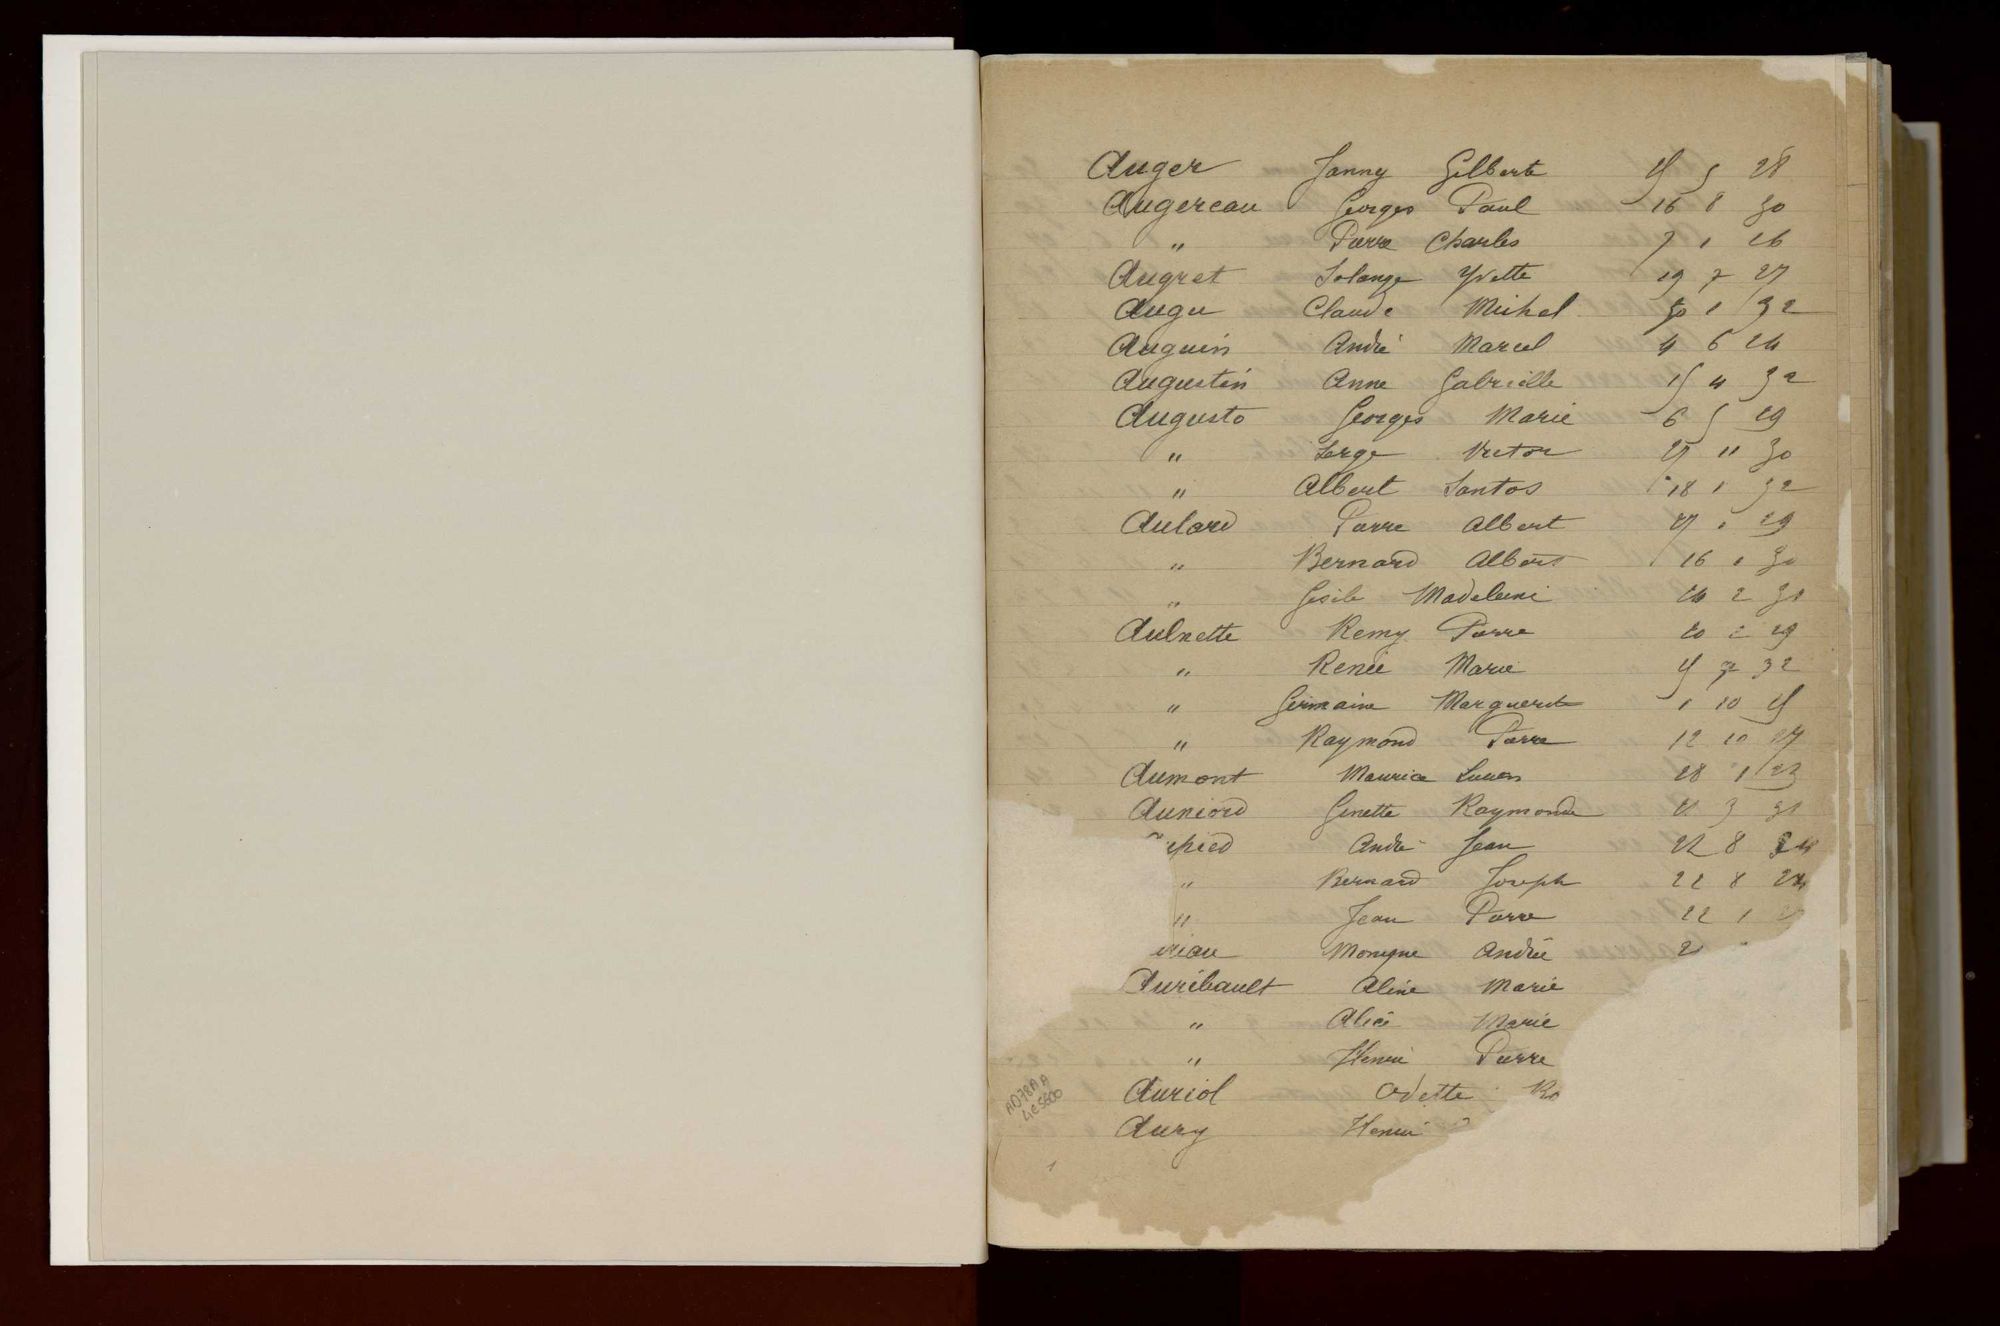 Auger Fanny Gilberte 25 5 28
Augereau Georges Paul 16 8 30
" Pierre Charles 7 1 26
Augret Solange Yvette 19 7 27
Augu Claude Michel 30 1 32
Auguin André Marcel 4 6 24
Augustin Anne Gabrielle 15 4 32
Augusto Georges Marie 6 5 29
" Serge Victor 27 11 30
" Albert Santos 18 1 32
Aulard Pierre Albert 27 1 29
" Bernard Albert 16 1 30
" Madeleine 2
Aulnette Remy Pierre 20 2 29
" Renée Marie 25 7 32
" Germaine Marguerite 1 10 25
" Raymond Pierre 12 10 27
Aumont Maurice Lucien 28 1 23
Auniord Ginette Raymonde 3 31
pied André Jean 22 8
" Bernard Joseph 22 8 24
" Jean Pierre 22 1
riau Monique André 2
Auribault Aline Marie
" Alice Marie
" Henri Pierre
Auriol Odette Ro
Aury Henri
AD78AA
4E5600
1